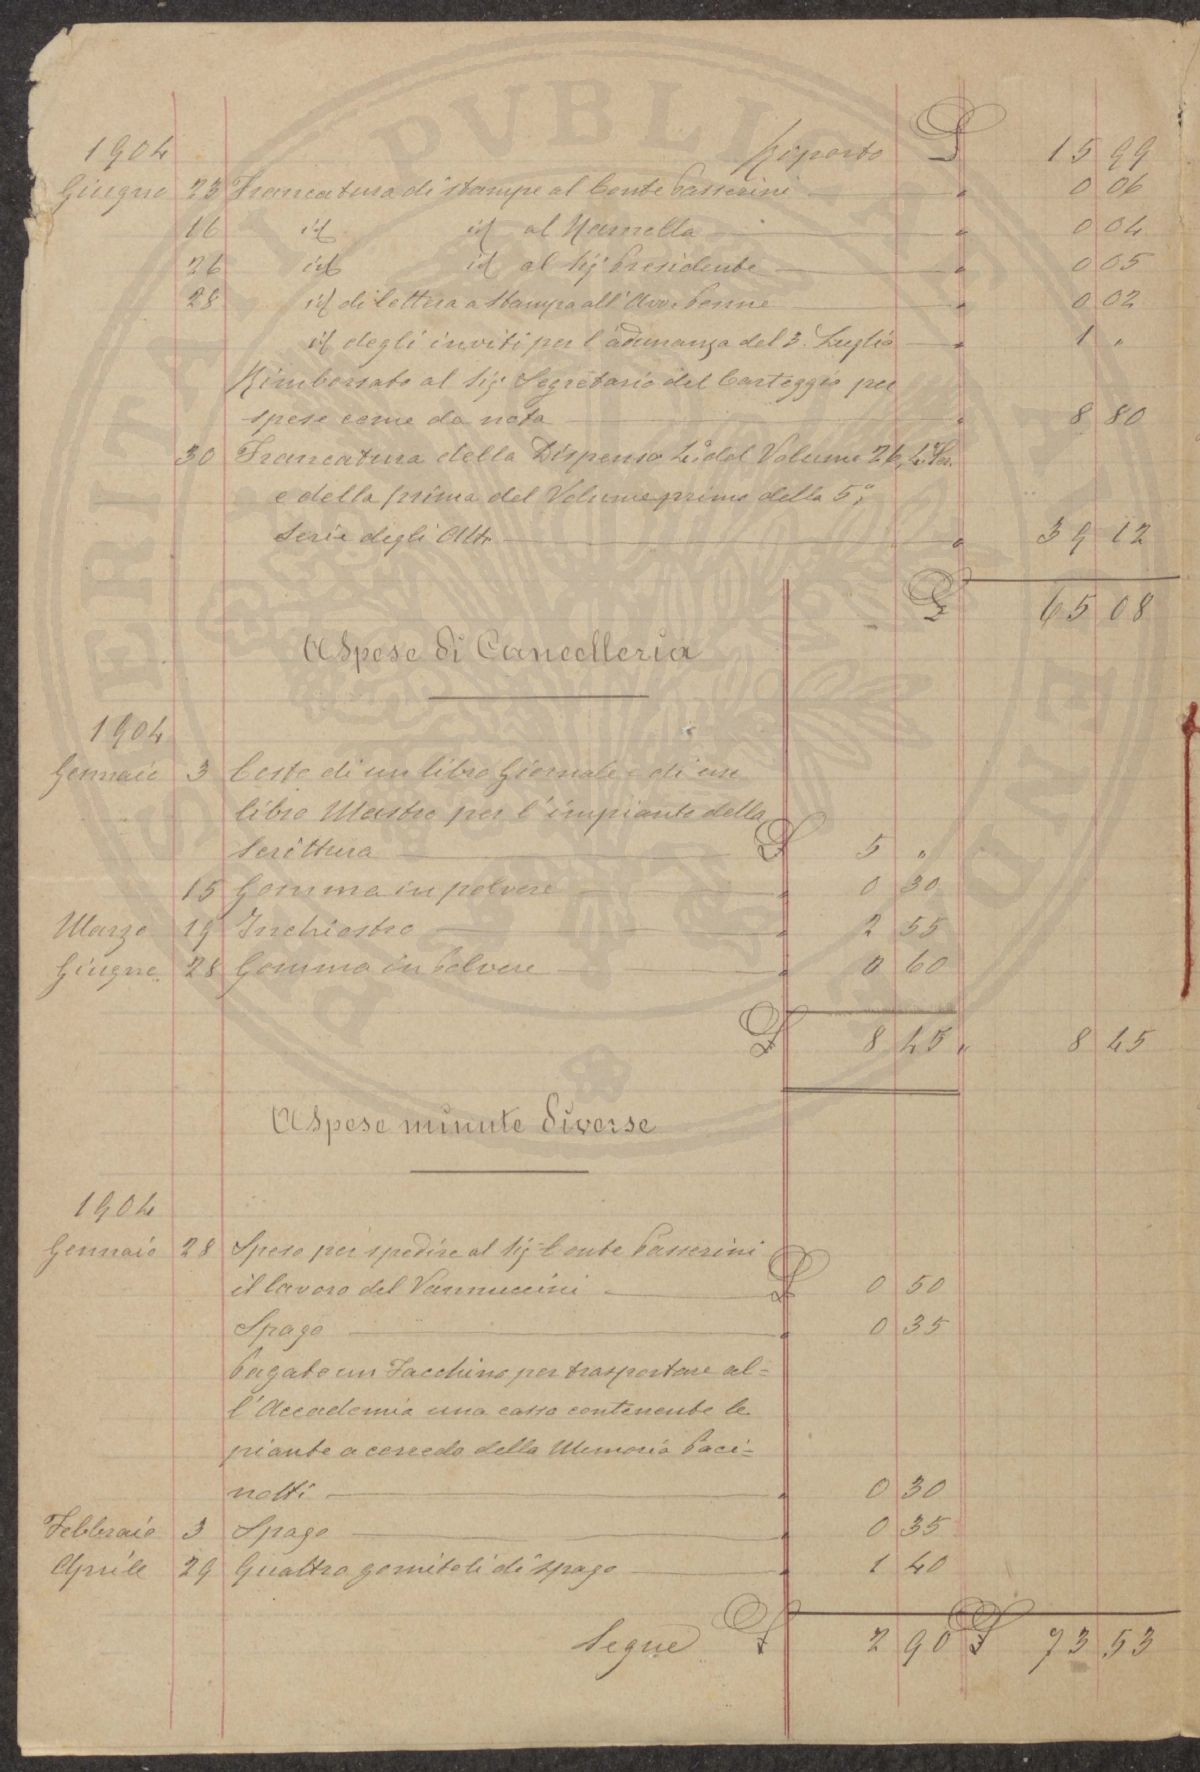 1904 Riporto £ 15 99
Giugno 23 Francatura di stampe al Conte Passerini " 0 06
16 id id al Mamella " 0 04
26 id id al Sig Presidente " 0 05
28 id di lettera a stampa all'Avv. Penne " 0 02
id degli inviti per l'adunanza del 3. Luglio " 1 "
Rimborsato al Sig. Segretario del Carteggio per
spese come da nota " 8 80
30 Francatura della Dispensa 4.a del Volume 26, 4.a Ser.
e della prima del Volume primo della 5.a
Serie degli Atti " 39 12
£ 65 08
A Spese di Cancelleria
1904
Gennaio 3 Costo di un libro Giornale e di un
libro Mastro per l'impianto della
Scrittura £ 5 "
15 Gomma in polvere " 0 30
Marzo 19 Inchiostro " 2 55
Giugno 28 Gomma in Polvere " 0 60
£ 8 45 " 8 45
A Spese minute Diverse
1904
Gennaio 28 Spese per spedire al Sig Conte Passerini
il lavoro del Vannuccini £ 0 50
Spago " 0 35
Pagato un Facchino per trasportare al=
l'Accademia una cassa contenente le
piante a corredo della Memoria Paci=
notti " 0 30
Febbraio 3 Spago " 0 35
Aprile 29 Quattro gomitoli di spago " 1 40
Segue £ 2 90 £ 73 53